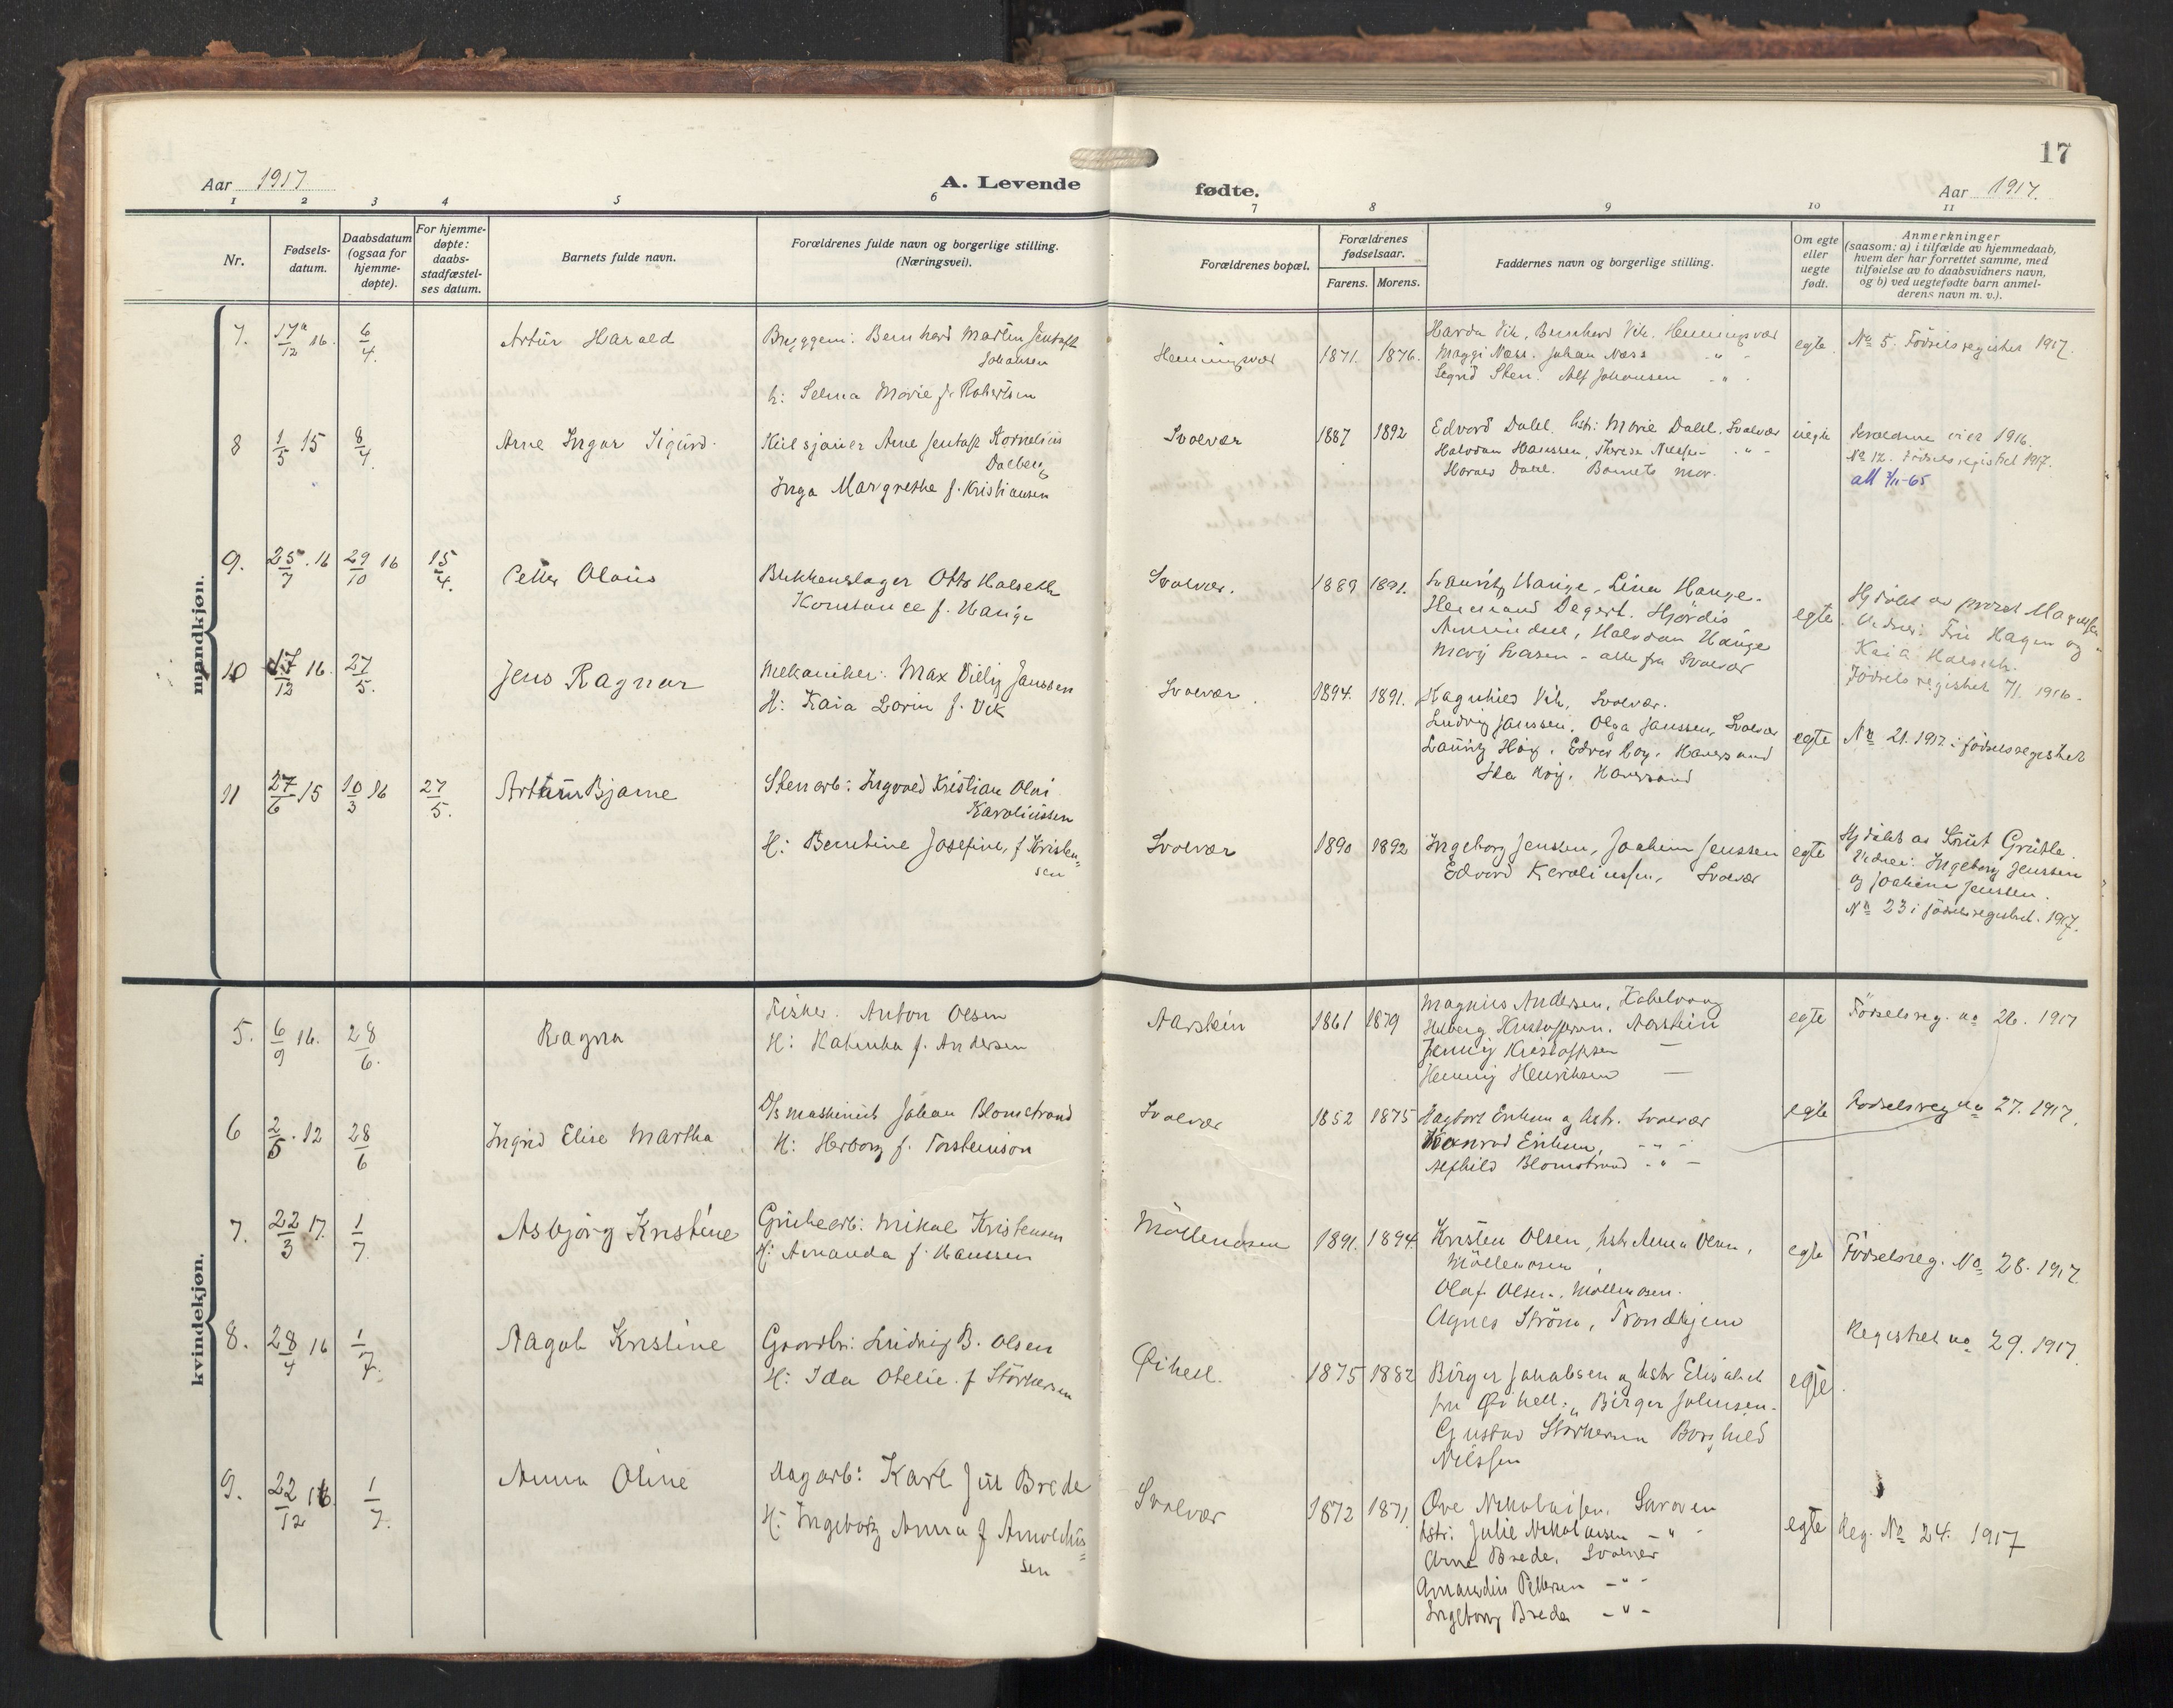 17
Aar 1917
A. Levende
fødte.
Aar 1917.
1 2 3 4 5 6 7 8 9 10 11
Nr.
Fødsels-
datum.
Daabsdatum
(ogsaa for
hjemme-
døpte).
For hjemme-
døpte:
daabs-
stadfæstel-
ses datum.
Barnets fulde navn.
Forældrenes fulde navn og borgerlige stilling.
(Næringsvei).
Forældrenes bopæl.
Forældrenes
fødselsaar.
Farens. Morens.
Faddernes navn og borgerlige stilling.
Om egte
eller
uegte
født.
Anmerkninger
(saasom: a) i tilfælde av hjemmedaab,
hvem der har forrettet samme, med
tilføielse av to daabsvidners navn,
og b) ved uegtefødte barn anmel-
derens navn m. v.).
mandkjøn.
7. 17/12 16. 6/4. Artur Harald
Bernhard Martin
Johansen
h: Selma Marie f. Robertsen
Henningsvær 1871. 1876.
Vik, Bernhard Vik. Henningsvær
Maggi Næss. Johan Næss " -
Sigrid Alf Johansen - " -
egte No 5. Fødselsregistret 1917.
8 1/5 15 8/4. Arne Ingar Sigurd.
Arne Kornelius
Dalberg
Inga Margrethe f. Kristiansen
Svolvær 1887 1892
Edvard Dahl. hstr: Marie Dahl. Svolvær
Halvdan Hanssen, Therese - " -
Harald Dahl. Barnets mor.
uegte viet 1916.
No 12. Fødselsregistret 1917.
9. 25/7. 16 29/10 16 15/4. Petter Olaus
Blikkenslager Otto Halseth
Konstance f. Hauge
Svolvær. 1889 1891.
Lauritz Hauge, Lina Hauge.
Hermand Degert. Hjördis
Halvdan Hauge
alle fra Svolvær
egte
Hjdöbt av provst
Vidner: Fru Hagen og
Kaia Halseth.
Födselsregistret 71. 1916.
10 17/12 16. 27/5. Jens Ragnar
Mekaniker: Max Janssen
H: Kaia f. Vik
Svolvær. 1894. 1891.
Ragnhild Vik, Svolvær.
Ludvig Janssen, Olga Janssen, Svolvær
Lauritz Hög. Höy.
Höy.
egte No 21. 1917 i födselsregistret
11 27/6 15 10/3 16 27/5. Artur Bjarne
Stenarb: Ingvald Kristian Olai
Karoliussen
H: Berntine Josefine, f Kristen-
sen
Svolvær 1890 1892
Ingeborg Jenssen, Joakim Jenssen
Edvard Karoliussen, Svolvær
egte
Hjdöbt av Knut Grütle.
Vidner: Ingeborg Jenssen
og Joakim Jenssen.
No 23 i födselsregistret. 1917.
kvindekjøn.
5. 6/9 16. 28/6. Ragna
Fisker. Anton Olsen
H: Katinka f. Andersen
Aarstein 1861 1879
Magnus Andersen, Kabelvaag
Kristoffersen, Aarstein
Jenny Kristoffersen —
Henriksen —
egte Födselsreg. no 26. 1917
6 2/5. 12 28/6 Ingrid Elise Martha
D/s maskinist Johan Blomstrand
H: Herborg f. Torsteinson
Svolvær 1852 1875
Hagbart Eriksen og hstr. Svolvær
Konrad Eriksen, - " -
Alfhild Blomstrand - " -
egte Födselsreg no 27. 1917.
7. 22/3 17. 1/7. Asbjörg Kristine
Grubearb: Mikal Kristensen
H: Amanda f. Hanssen
Möllenosen 1891. 1894
Kristen Olsen, hstr Anna Olsen,
Möllenosen
Olaf Olsen, Möllenosen.
Agnes Ström, Trondhjem
egte Födselsreg. No 28. 1917
8. 28/4 16 1/7. Aagot Kristine
Gaardbr: Ludvig B. Olsen
H: Ida Otelie f Störkersen
Øihell. 1875 1882
Birger Jakobsen og hstr Elisabet
fra Øihell. Birger Johnsen.
Gustav Störkersen Borghild
Nilssen
egte Registret no 29. 1917.
9. 22/12 16. 1/7. Anna Oline
Dagarb: Karl Jul Brede
H: Ingeborg Anna f Arnoldus-
sen
Svolvær 1872 1871
Ove Nikolaisen.
hstr. Julie Nikolaisen - " -
Arne Brede. Svolvær
Amandus Pettersen - " -
Ingeborg Brede - " -
egte Reg. No 24. 1917